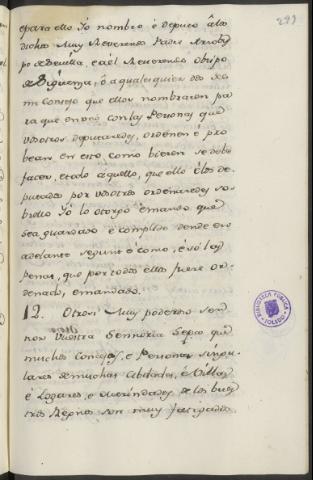 299
é para ello Yo nombro é depuco á los
dichos Muy Reverendo Padre Arzobis
po de Sevilla, é a él Reverendo Obispo
de Sigüenza, ó a qualesquier dos de
mi Consejo que ellos nombraren pa
ra que en uno con las Personas que
vosotros deputaredes, ordenen é pro
bean en esto como bieren se debe
facer, é todo aquello, que ellos é los de
putados por vosotros ordenaredes so
brello Yo lo otorgo é mando que
sea guardado é complido dende en
adelante segunt é como, é só las
penas, que por todos ellos fuere or
denado, é mandado.
12. Otrosi Muy poderoso señ
nor Vuestra Sennoria sepa que
muchos Concejos, é Personas singu
lares de muchas Cibdades, é Villas
é Logares, é Merindades de los bues
tros Regnos son muy fatigados
BIBLIOTECA PÚBLICA
TOLEDO